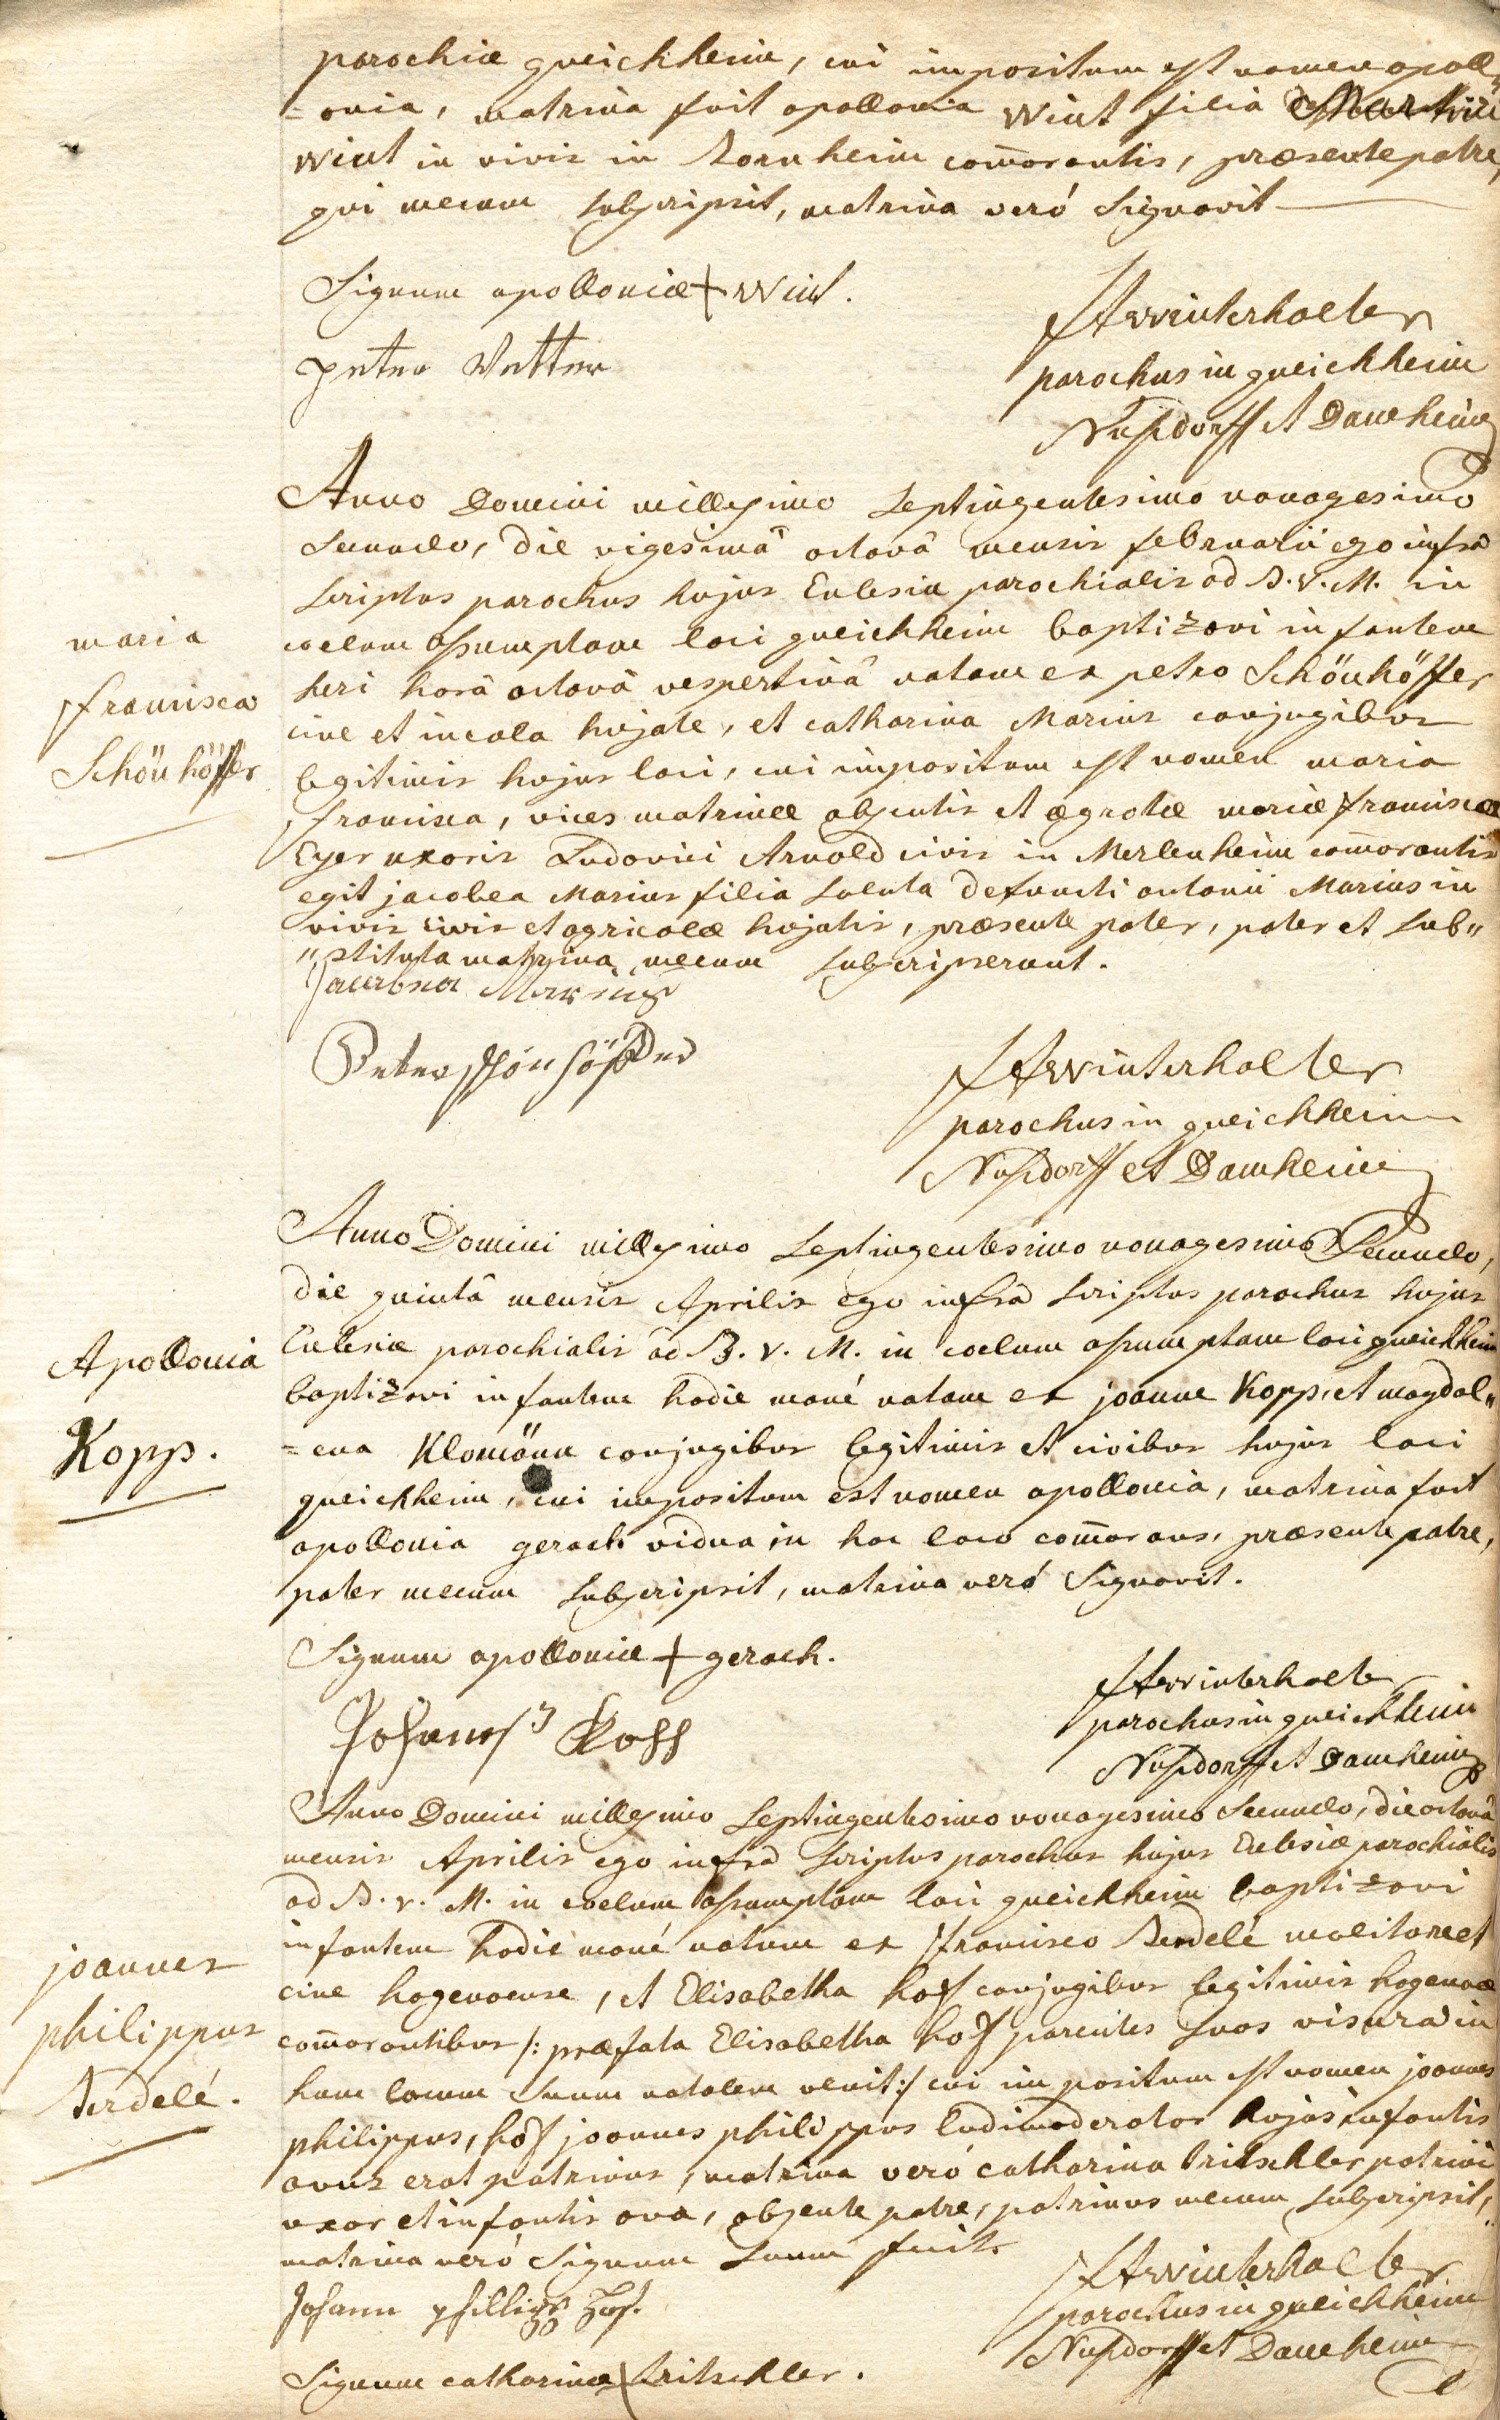 parochiæ queichheim, cui impositum est nomen apoll„
=onia, matrina fuit apollonia Wint filia Martini
Wint in vivis in Bornheim com̄orantis, præsente patre,
qui mecum subscripsit, matrina veró signavit
Signum apolloniæ + Wint.
peter Vetter
Winterhalter
parochus in queichheim
Nußdorff et Damheim
Anno Domini millesimo septingentesimo nonagesimo
secundo, die vigesimâ octavâ mensis februarii ego infrà
scriptus parochus hujus Eclesiæ parochialis ad B. V. M. in
coelum assumptam loci queichheim baptizavi infantem
maria
francisca
Schönhöffer
heri horâ octavâ vespertinâ natam ex petro Schönhöffer
cive et incola hujate, et catharina Marius conjugibus
legitimis hujus loci, cui impositum est nomen maria
francisca, vices matrinæ absentis et ægrotæ mariæ franciscæ
Eyer uxoris Ludovici Arnold civis in Merlenheim com̄orantis
egit jacobea Marius filia soluta defuncti antonii Marius in
vivis civis et agricolæ hujatis, præsente pater, pater et sub„
„stituta matrina mecum subscripserunt.
Jacobea Marius
Peter Schönhöffer
Winterhalter
parochus in queichheim
Nußdorff et Damheim
Anno Domini millesimo septingentesimo nonagesimo Secundo,
die quintâ mensis Aprilis ego infrà scriptus parochus hujus
Eclesiæ parochialis ad B. V. M. in coelum assumptam loci queichheim
Apollonia
Kopp.
baptizavi infantem hodie mané natam ex joanne Kopp, et magdal„
=ena Klomänn conjugibus legitimis et civibus hujus loci
queichheim, cui impositum est nomen apollonia, matrina fuit
apollonia gerach vidua in hoc loco com̄orans, præsente patre,
pater mecum subscripsit, matrina veró signavit.
Signum apolloniæ + gerach.
Johannes Kopp
Winterhalter
parochus in queichheim
Nußdorff et Damheim
Anno Domini millesimo septingentesimo nonagesimo secundo, die octavâ
mensis Aprilis ego infrà scriptus parochus hujus Eclesiæ parochialis
ad B. V. M. in coelum assumptam loci queichheim baptizavi
joannes
philippus
infantem hodie mané natum ex francisco Berdelé molitore et
cive hagenoense, et Elisabetha hoff conjugibus legitimis hagenoæ
com̄orantibus /: præfata Elisabetha hoff parentes suos visura in
hunc locum suum natalem venit :/ cui impositum est nomen joannes
philippus, hoff joannes philippus ludimoderator hujus infantis
avus erat patrinus, matrina veró catharina tritschler patrini
uxor et infantis ava, absente patre, patrinus mecum subscripsit,
matrina veró signum suum fecit
Johann phillipp Hof.
Signum catharinæ + tritschler.
Winterhalter
parochus in queichheim
Nußdorff et Damheim